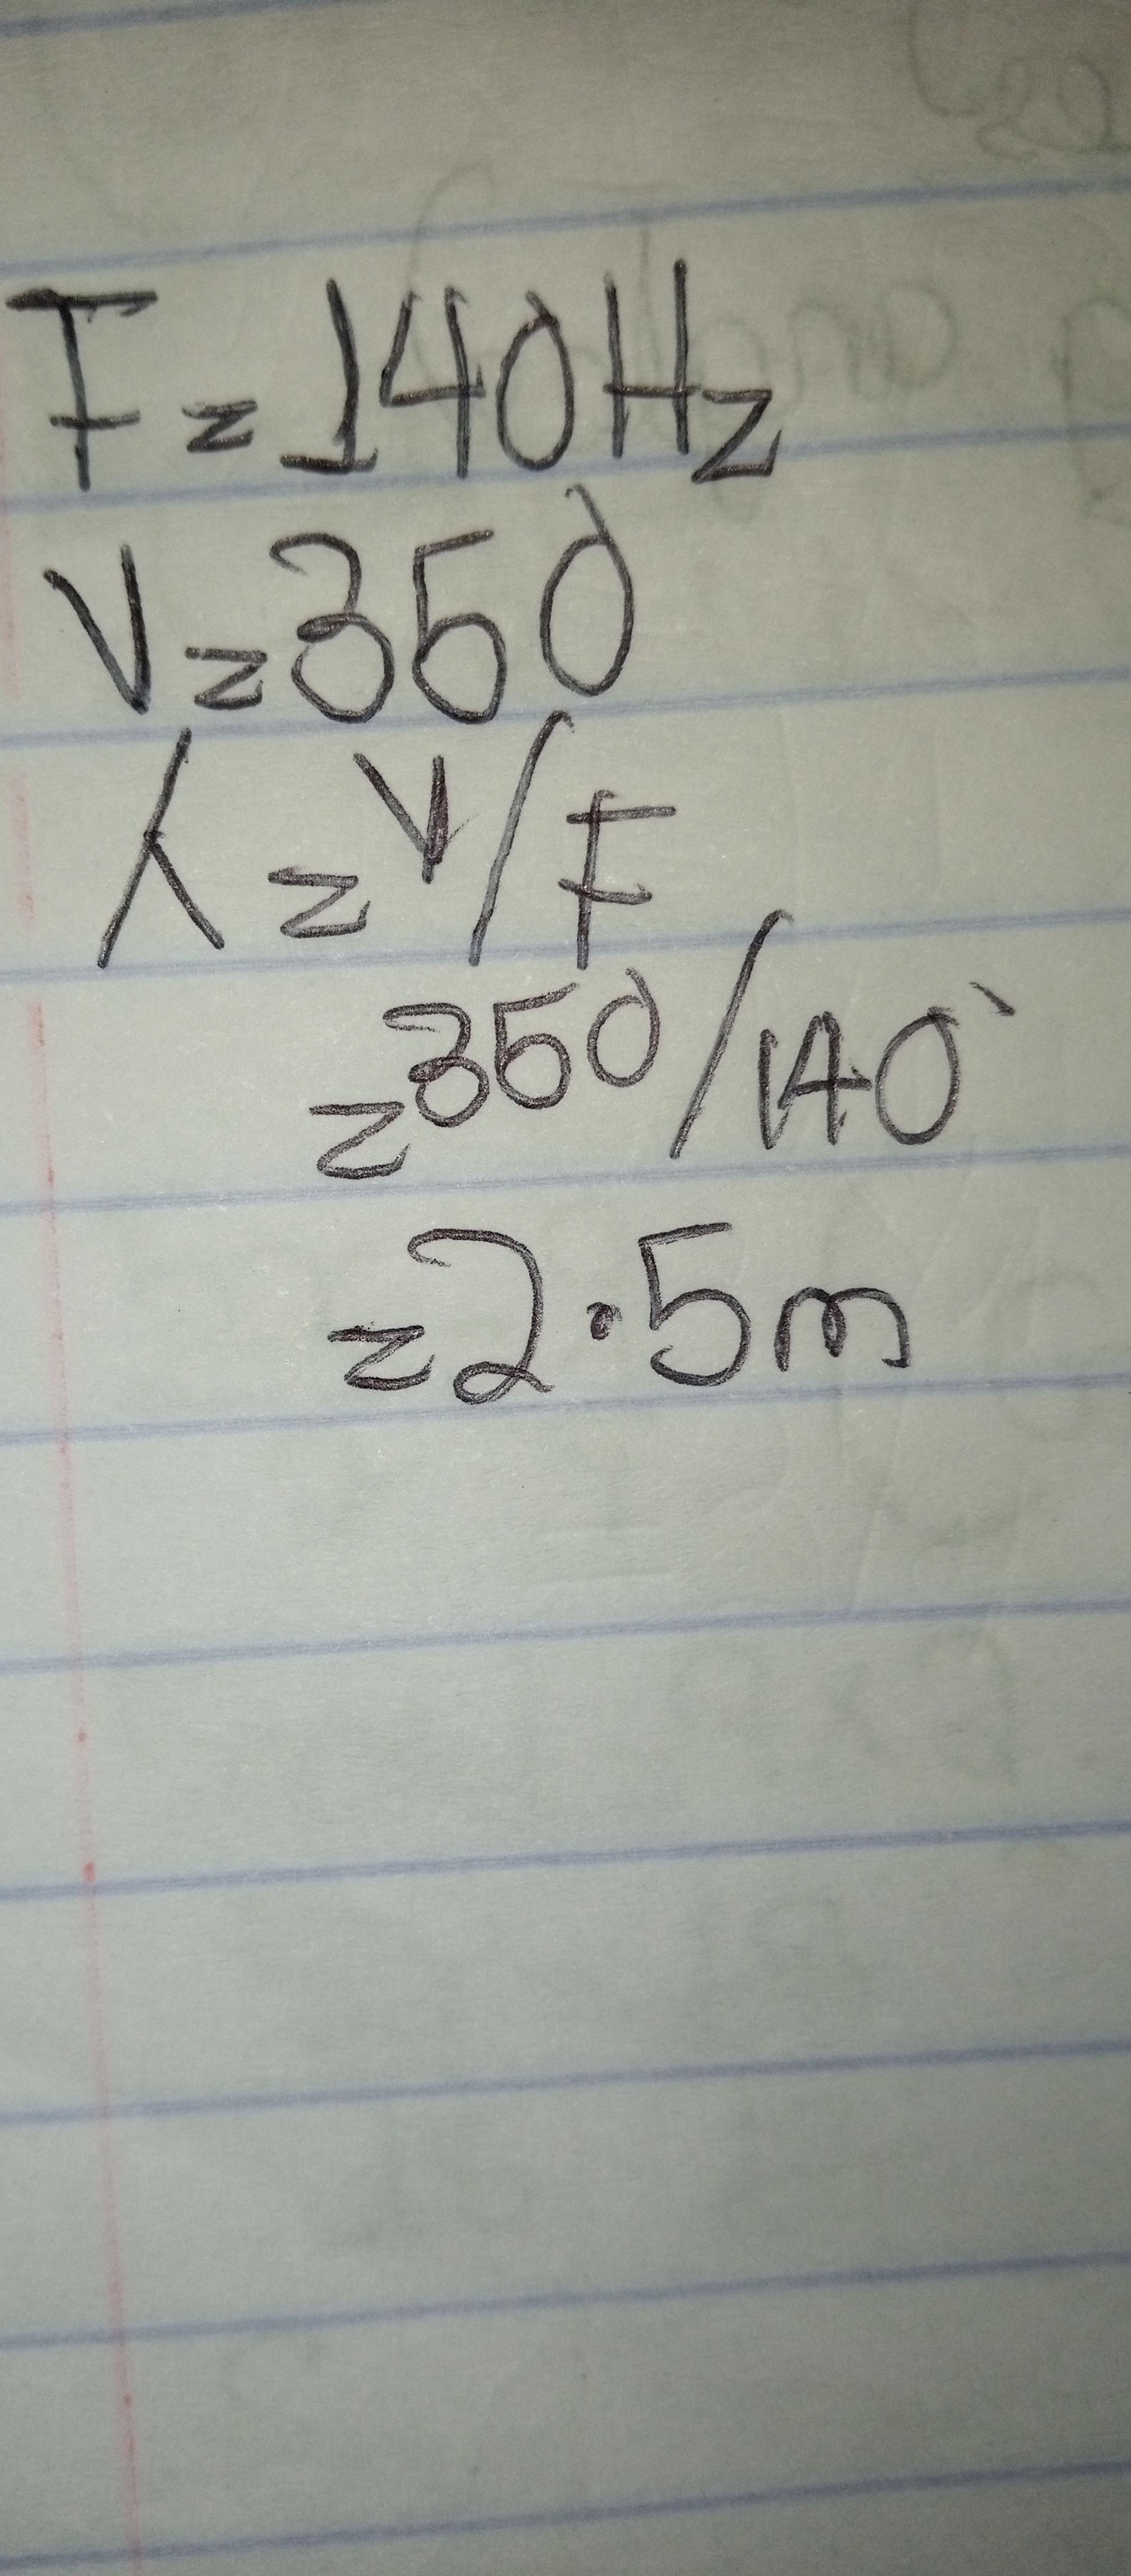 F = 140Hz
V = 350
λ = V/F
= 350/140
= 2.5m